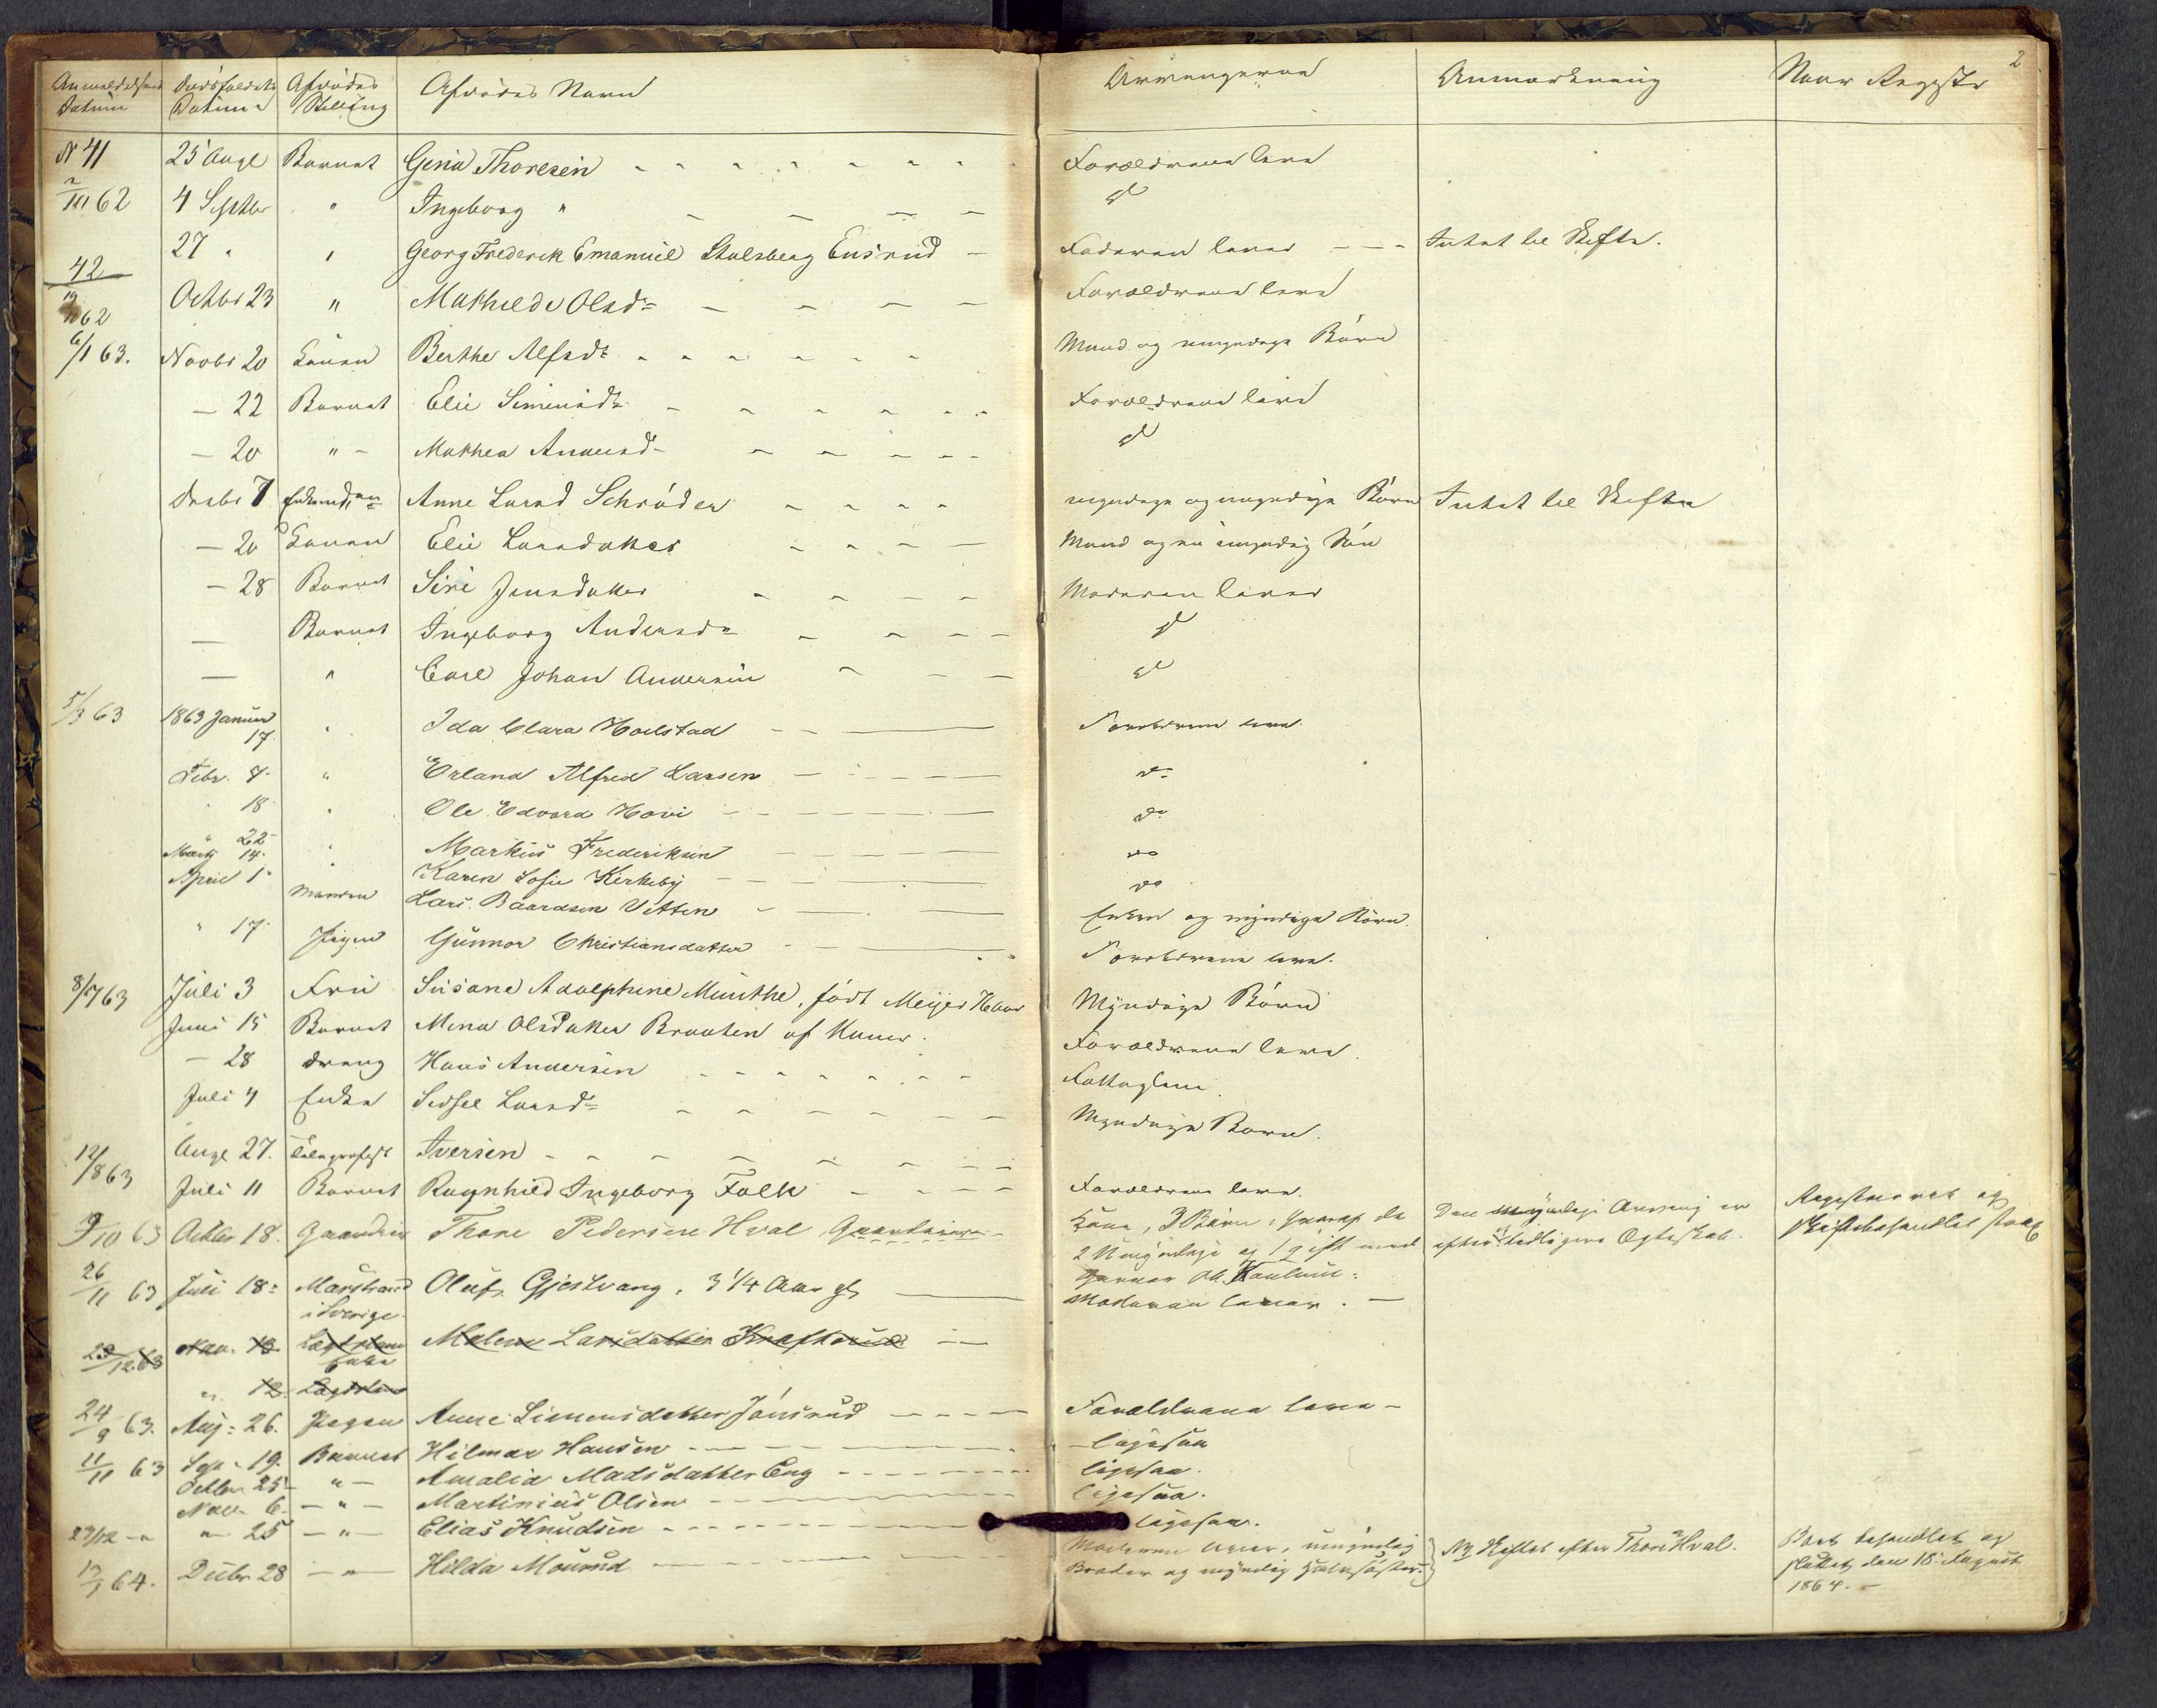 2
Anmeldelsens Datum Dødsfaldets Datum Afdødes Stilling Afdødes Navn Arvingerne Anmærkning Naar Registr
N 41 25 Augt Barnet Gina Thoresen Forældrene leve
2/10 62 4 Septbr " Ingeborg " d
42 27 " " Georg Frederik Emanuel Stalsberg Ensrud Faderen lever Intet til Skifte.
62 Octbr 23 " Mathilde Olsdr Forældrene leve
6/1 63. Novbr 20 Konen Berthe Alfsdr Mand og umyndige Børn
— 22 Barnet Elie Simensdr Forældrene leve
— 20 " Mathea Andersdr d
Decbr 7 Anne Larsd Schrøder myndige og umyndige Børn Intet til Skifte
— 20 Konen Elie Larsdatter Mand og en umyndig Søn
— 28 Barnet Siri Jensdatter Moderen lever
— Barnet Ingeborg Andersdr d
— " Carl Johan Andersen d
5/3 63 1863 Januar 17 " Ida Clara Hoelstad Forældrene leve.
Febr. 8 " Erland Alfred Larsen do
" 18 " Ole Edvard Hovi do
" 22 " Markus Frederiksen do
Marts 14 " Karen Sofie Kirkeby do
April 1 Manden Lars Baardsen Vetten Enken og myndige Børn.
" 17 Pigen Gunnor Christiansdatter Forældrene leve.
8/7 63 Juli 3 Fru Susane Adolphine Munthe, født Meijer Myndige Børn
Juni 15 Barnet Mina Olsdatter Braaten af Forældrene leve.
— 28 dreng Hans Andersen Fattiglem.
Juli 4 Enke Sidsel Larsdr Myndige Børn.
12/8 63 Augt 27. Telegrafist Iversen
Juli 11 Barnet Ragnhild Ingeborg Falk Forældrene leve.
9/10 63 Octbr 18. Gaardm Thore Pedersen Hval Kone, 3 Børn, hvoraf de Den Arving er Registreret og
2 Umyndige og 1 gift med efter tidligere Ægteskab. Skiftebehandlet
26/11 63 Juli 18 Marstrand i Sverige Oluf Gjestvang, 3 1/4 Aar gl. Moderen lever.
23/12 63 Nov. Malene Larsdatter Krafterud
" 12.
24/9 63. Aug. 26. Pigen Anne Simensdatter Jønsrud Forældrene leve
11/11 63 Sep. 19. Barnet Hilmar Hansen ligesaa
Octbr 25 " Amalia Madsdatter Eng ligesaa.
Nov. 6 " Martinius Olsen ligesaa.
" 25 " Elias Knudsen ligesaa.
13/1 64. Decbr 28 " Hilda Mourud Moderen lever, umyndig Skiftet efter Thore Hval. Boet behandlet og
Broder og myndig Halvsøster. sluttet den 18 August
1864.